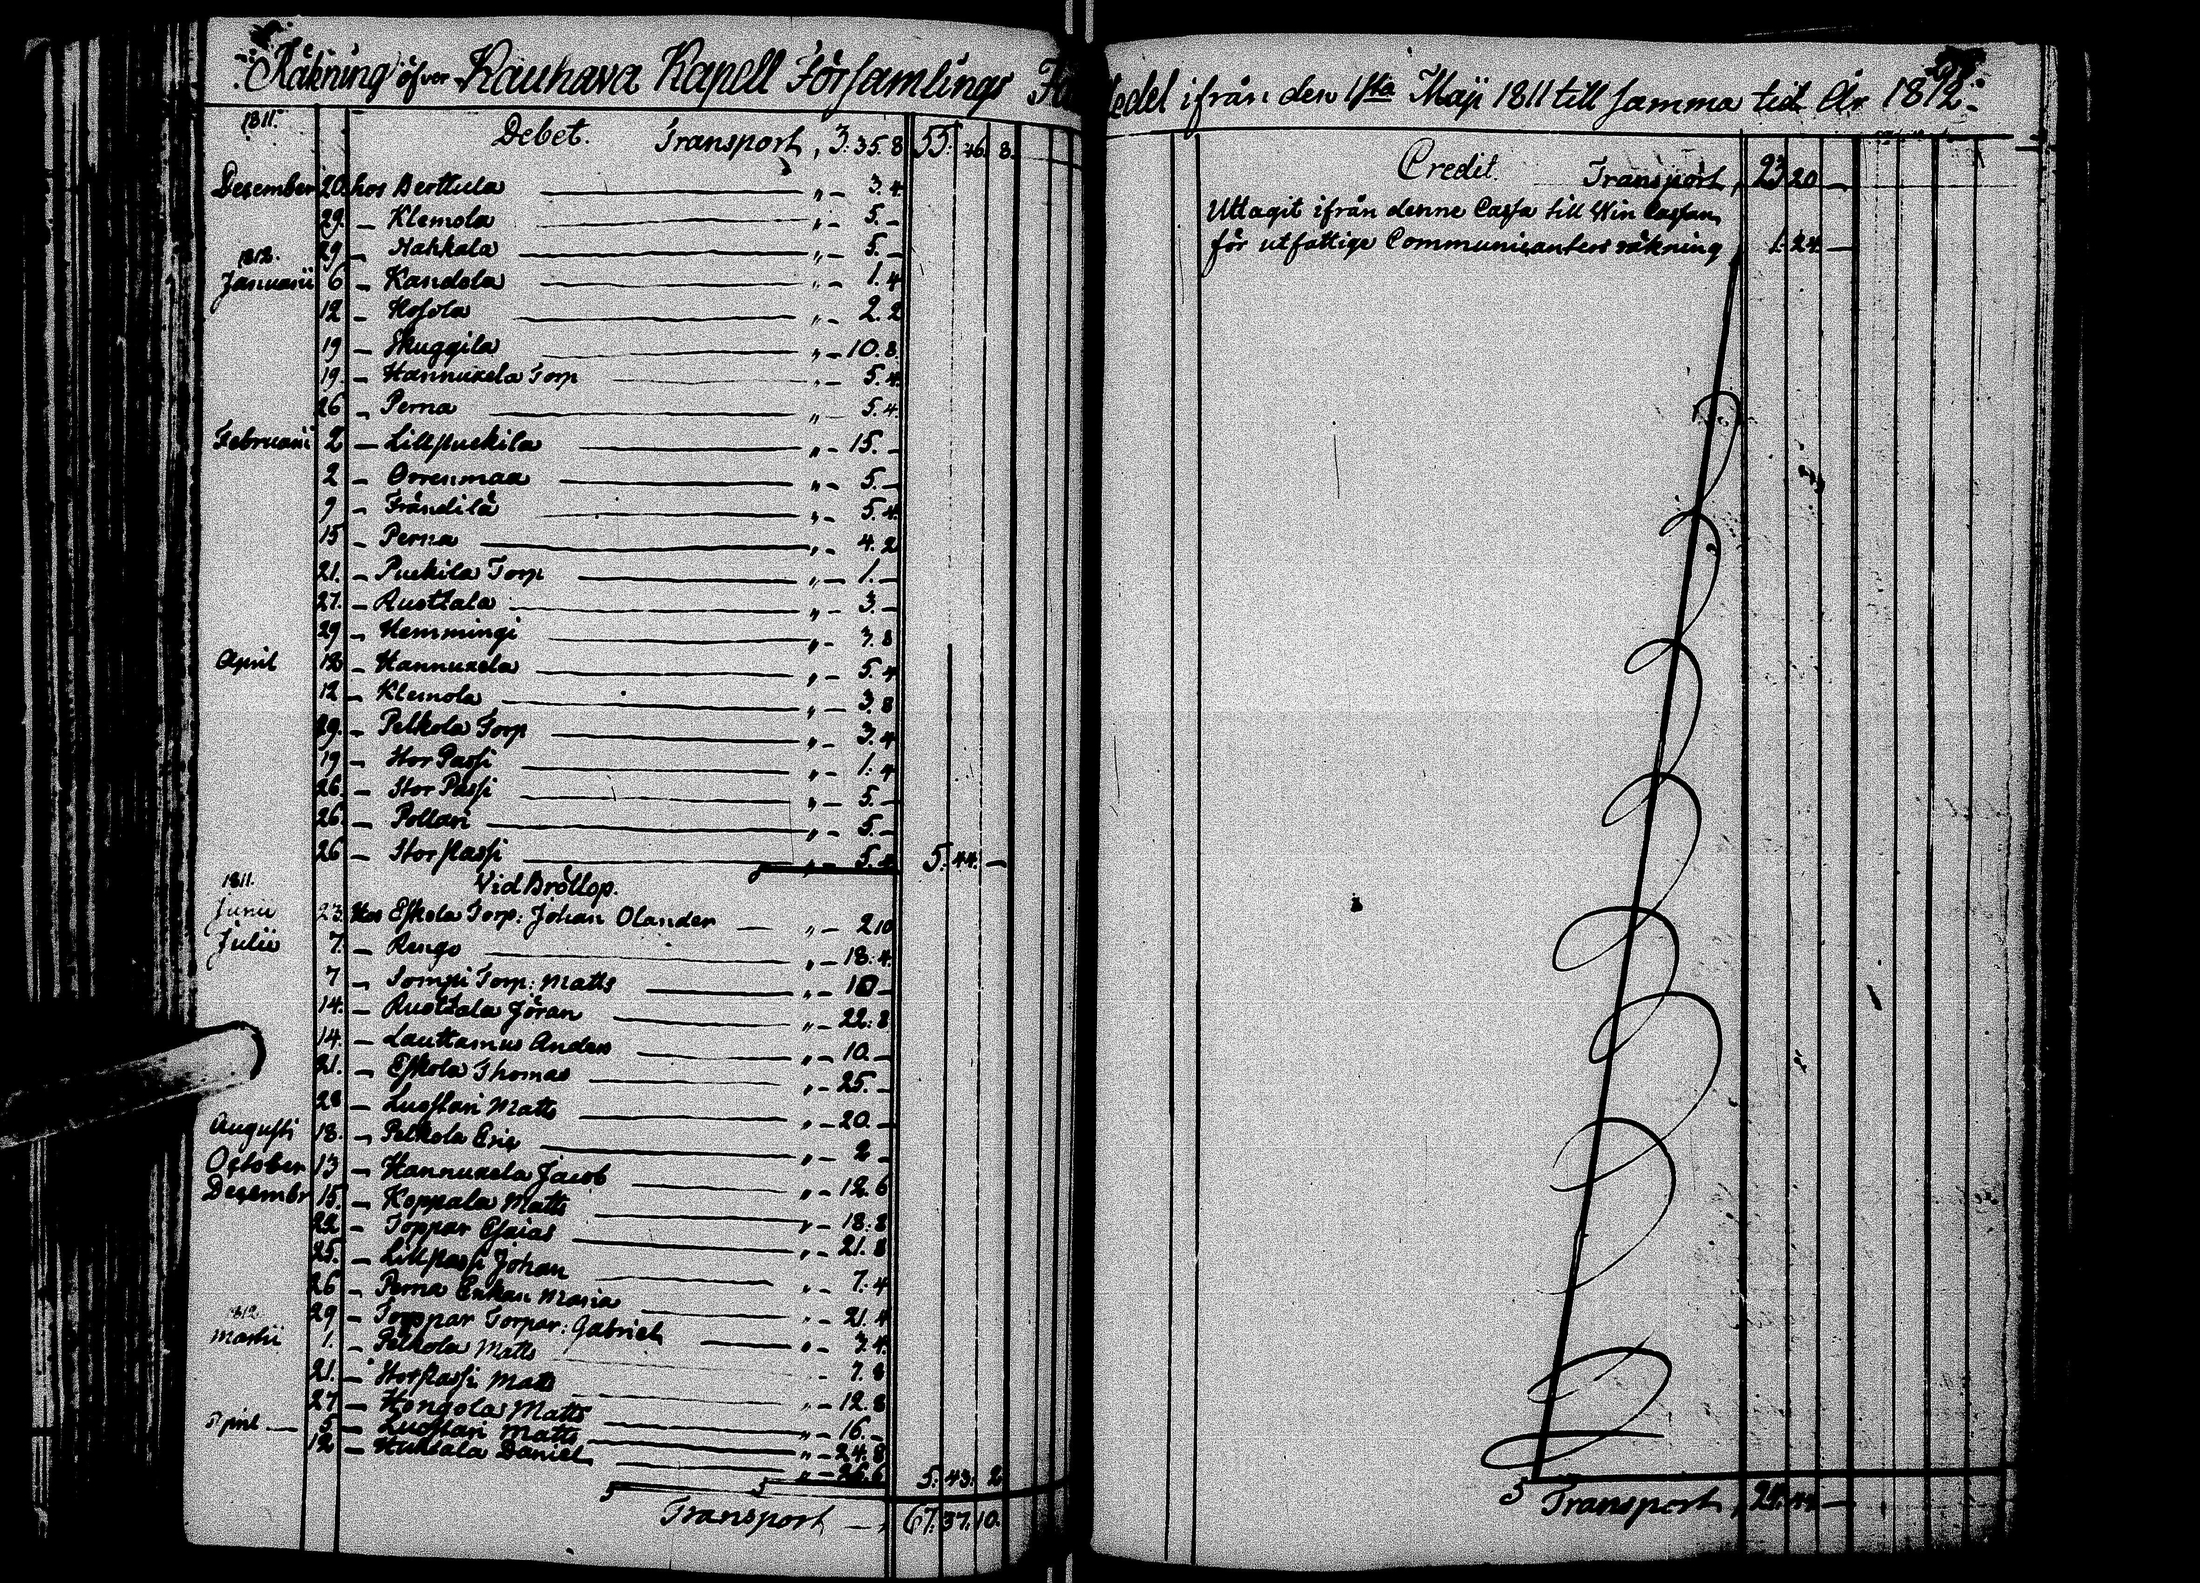 Räkning öfver Kauhava Kapell Församlings Fattedel ifrån den 1sta Maji 1811 till samma tid År 1812.
1811.
Debet. Transport, 3. 35. 8 55. 46. 8.
Desember 20. hos Bertula „ – 3. 4
29. – Klemola „ – 5. –
29 – Nahkala „ – 5. –
1812.
Januarii 6 – Kandola „ – 1. 4
12 – Hosola „ – 2. 2
19 – Skuggila „ – 10. 8.
19. – Hannuxela Torp „ – 5. 4.
26 – Perna „ 5. 4.
Februarii 2 – Lillpuckila „ – 15. –
2 – Orrenmaa „ – 5. –
9 – Frändilä „ – 5. 4.
15 – Perna „ – 4. 2
21. – Puckila Torp „ – 1. –
27. – Ruottala „ 3. –
29 – Hemmingi „ – 3. 8
April 12 – Hannuxela „ – 5. 4
12 – Klemola „ – 3. 8
19. – Pelkola Torp „ – 3. 4
19 – Stor Passi „ – 1. 4
26 – Stor Passi „ – 5. –
26 – Pollari „ – 5. –
26 – Storpassi „ – 5. 4. 5. 44. –
Vid Bröllop.
1811.
Junii 23. Hos Eskola Torp: Johan Olander „ – 2 10
Julii 7. – Rengo „ – 18. 4.
7 – Sompi Torp: Matts „ –
14. – Ruottala Jöran „ – 22. 8
14. – Lauttamus Anders „ – 10. –
21. – Eskola Thomas „ – 25. –
28 – Luostari Matts „ – 20. –
Augusti 18. – Pelkola Eric „ – 2 –
October 13 – Hannuxela Jacob „ – 12. 6
Desembr 15. – Koppala Matts „ – 18. 8
22 – Toppar Esaias „ – 21. 8
25. – Lillpassi Johan „ – 7. 4
26 – Perna Enkan Maria „ – 21. 4
29 – Torppar Torpar: Gabriel „ – 3. 4.
1812
Martii 1. – Pelkola Matts – 7. 8
21. – Storpassi Matts „ – 12. 8
27 – Hongola Matts „ – 16. –
April – 5 – Luostari Matts „ – 24. 8
12 – Huhtala Daniel „ – 26. 6 5. 43. 2
Transport – „ 67. 37. 10.
Credit. Transport, 23 20 –
Uttagit ifrån denne Cassa till Win Cassan,
för utfattige Communicanters räkning, 1. 24 –
Transport, 24. 44. –